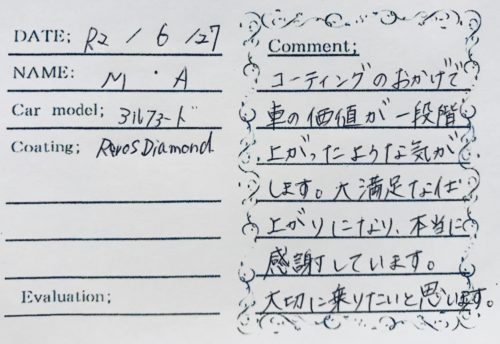 DATE; R2 / 6 / 27
NAME: M ・ A
Car model; アルファード
Coating; RevosDiamond
Evaluation;
Comment;
コーティングのおかげで
車の価値が一段階
上がったような気が
します。大満足な仕
上がりになり、本当に
感謝しています。
大切に乗りたいと思います。